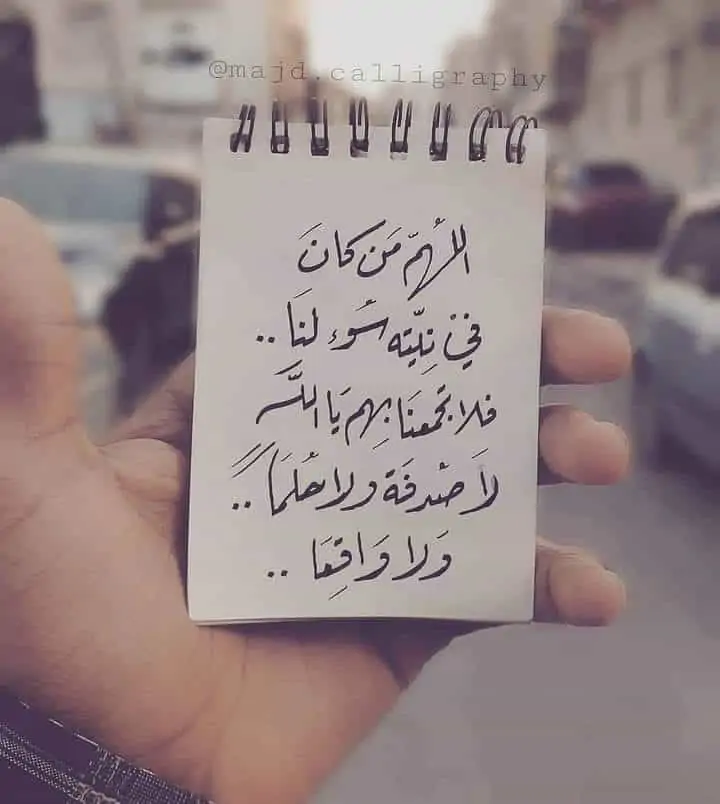 @majd.calligraphy
اللهمّ مَن كانَ
في نِيّته سُوء لنَا ..
فلا تجمعنَا بِهم يَا اللَّه
لَا صُدفَة ولا حُلمَاً ..
وَلا وَاقِعَا ..